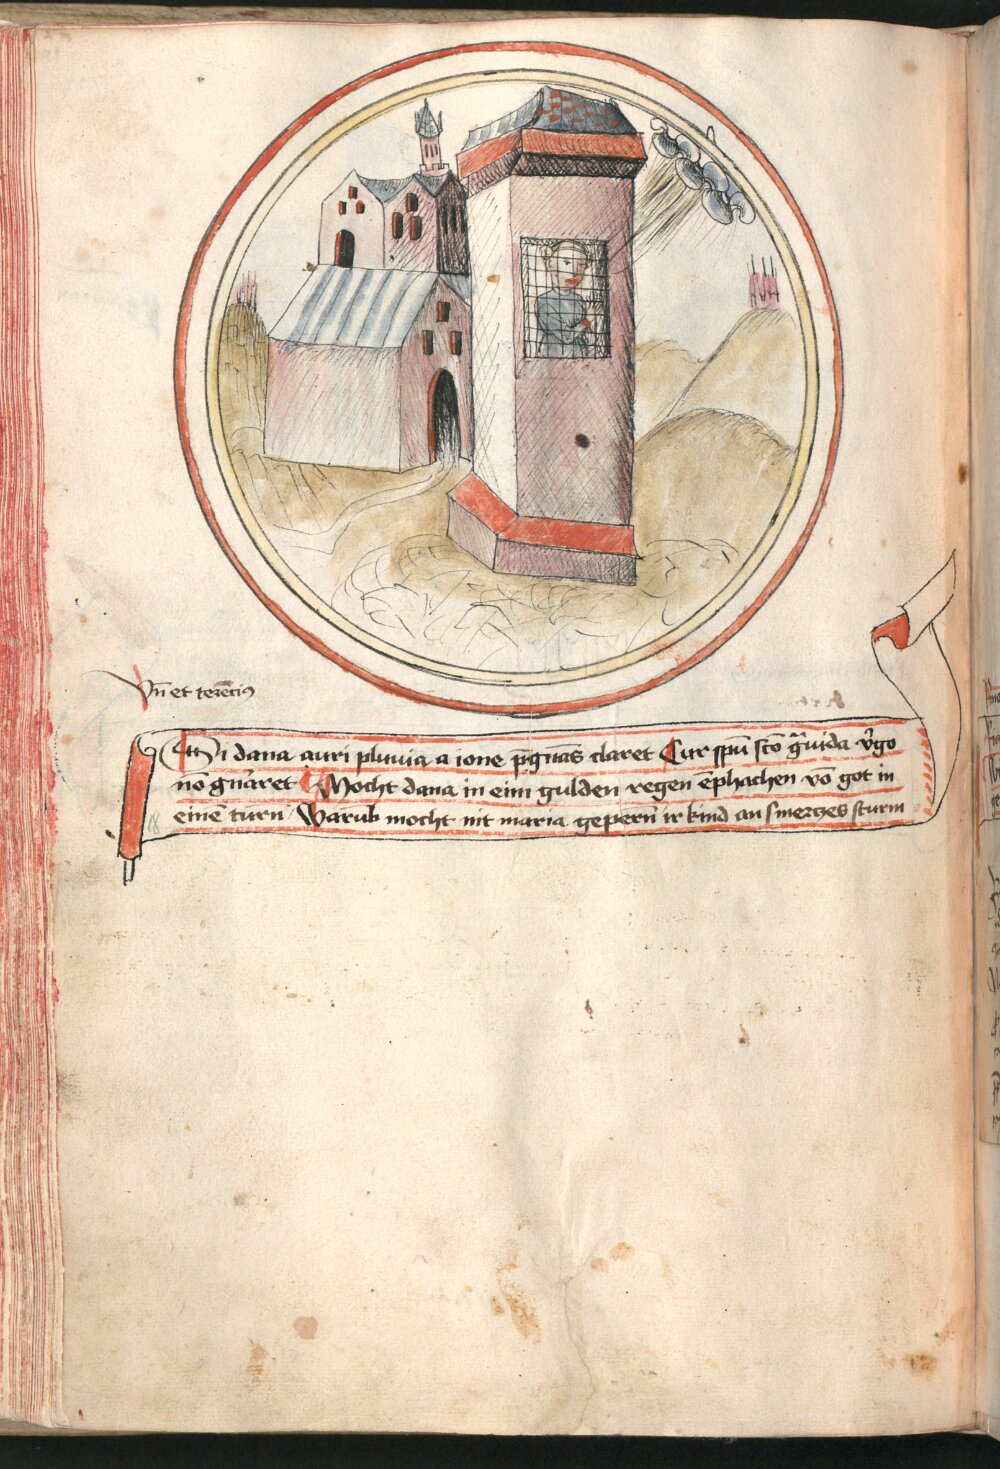 Vn̄ et terēciꝰ
Si dana auri pluuia a ioue p̄gnās claret Cur spū scō g̃uida v̓go
nō gn̓aret Mocht dana in eim gulden regen ēphachen vō got in
einē turn Warub mocht nit maria gepern̄ ir kind an smerczes sturm